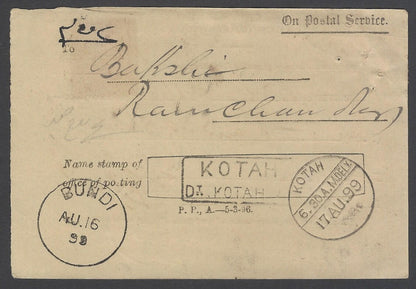 On Postal Service.
To
Bakshi
Ramchandra
Name stamp of
office of posting
KOTAH
DT. KOTAH
P. P., A.—5-3-96.
BUNDI
AU.16
99
KOTAH
6.30A.M.DELY.
17 AU.99